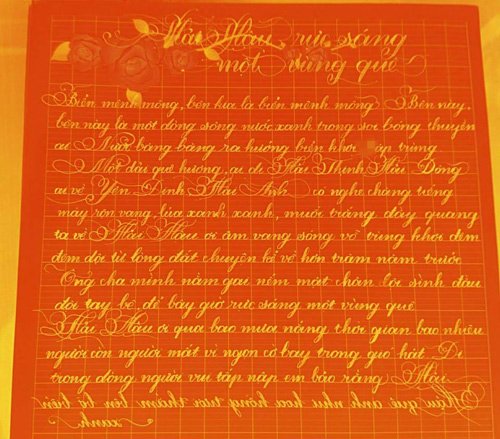 Hải Hậu rực sáng
một vùng quê
Biển mênh mông, bên kia là biển mênh mông. Bên này,
bên này là một dòng sông nước xanh trong soi bóng thuyền
ai băng băng ra hướng biển khơi trùng
Một dải quê hương, ai đi Hải Thịnh Hải Đông
ai về Yên Định Hải Anh có nghe chăng tiếng
máy rộn vang, lúa xanh xanh, muối trắng đầy quang
ta về Hải Hậu ơi âm vang sóng vỗ vùng khơi đêm
đêm dội từ lòng đất chuyện kể về hơn trăm năm trước
Ông cha mình nằm gai nếm mật chân lội sình đầu
đội tay bê, để bây giờ rực sáng một vùng quê
Hải Hậu ơi qua bao mưa nắng thời gian bao nhiêu
người còn người mất vì ngọn cờ bay trong gió hát. Đi
trong dòng người vui tấp nập em bảo rằng Hải
Hậu quê anh như hoa hồng tươi thắm bên bờ biển
xanh.